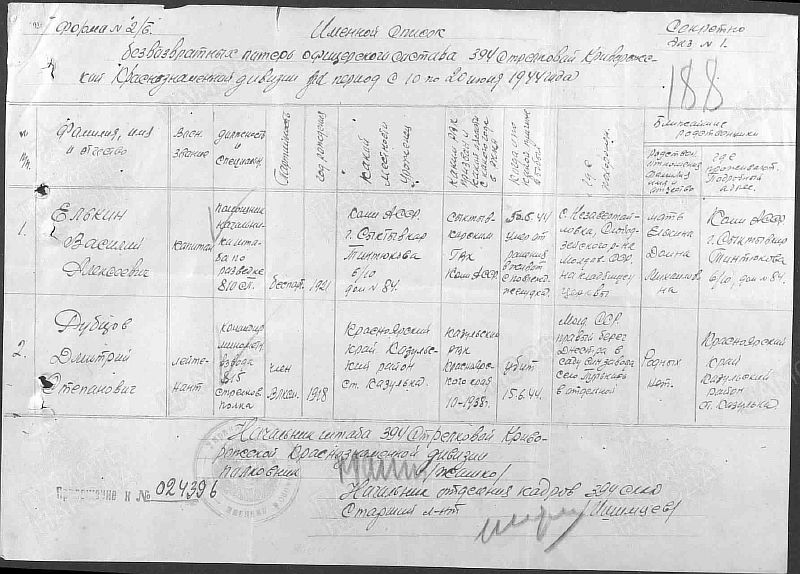 Форма № 2/Б.
Именной список
Секретно
экз. № 1.
безвозвратных потерь офицерского состава 394 Стрелковой Криворож-
ской Краснознаменной дивизии за период с 10 по 20 июня 1944 года
188
№ п/п.
Фамилия, имя и отчество
Воен. звание
должность и специальн.
Партийность
год рождения
Какой местности уроженец
Каким РВК призван
Когда и по какой причине выбыл
Где похоронен
Ближайшие родственники
Родствен. отношения Фамилия имя и отчество
где проживают. Подробный адрес.
1.
Елькин
Василий
Алексеевич
капитан
помощник
начальни-
ка шта-
ба по
разведке
810 СП.
беспарт.
1921
Коми АССР.
г. Сыктывкар
Тинтюкова
б/10
дом № 84.
Сыктыв-
карским
ГВК
Коми АССР.
умер от
ранения
в живот
с. Незавертай-
ловка, Слобод-
зейского р-на
Молдав. ССР.
на кладбище
церквы
мать
Елькина
Михайлов-
на
Коми АССР
г. Сыктывкар
Тинтюкова
б/10, дом № 84.
2.
Дубцов
Дмитрий
Степанович
Лейте-
нант.
командир
минометн.
взвода
815
стрелков.
полка
член
ВЛКСМ.
1918
Красноярский
край Козуль-
ский район
ст. Козулька.
Козульский
РВК
Краснояр-
ского края
10-1938г.
убит
15.6.44.
Молд. ССР.
правый берег
Днестра в
саду винзавода
село Пуркары
в отдельной
Родных
нет.
Красноярский
край
Козульский
район
ст. Козулька.
Начальник штаба 394 Стрелковой Криво-
рожской Краснознаменной дивизии
полковник /Жашко/
Приложение к № 024396
Начальник отделения кадров 394 скд
Старший л-нт /Ишимцев/